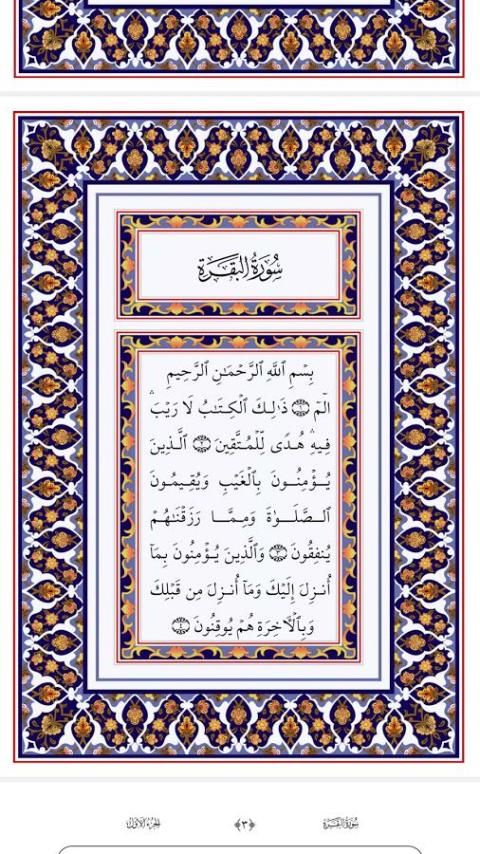 سُورَةُ البَقَرَةِ
بِسْمِ ٱللَّهِ ٱلرَّحْمَـٰنِ ٱلرَّحِيمِ
الٓمٓ ۝١ ذَٰلِكَ ٱلْكِتَـٰبُ لَا رَيْبَ ۛ
فِيهِ ۛ هُدًى لِّلْمُتَّقِينَ ۝٢ ٱلَّذِينَ
يُؤْمِنُـونَ بِٱلْغَيْبِ وَيُقِـيمُونَ
ٱلصَّلَـوٰةَ وَمِمَّـا رَزَقْنَـٰهُمْ
يُنفِقُونَ ۝٣ وَٱلَّذِينَ يُؤْمِنُونَ بِمَآ
أُنـزِلَ إِلَيْكَ وَمَآ أُنـزِلَ مِن قَبْلِكَ
وَبِٱلْـَٔاخِرَةِ هُمْ يُوقِنُونَ ۝٤
سُورَةُ البَقَرَةِ ﴿٣﴾ الجُزْءُ الأَوَّلُ